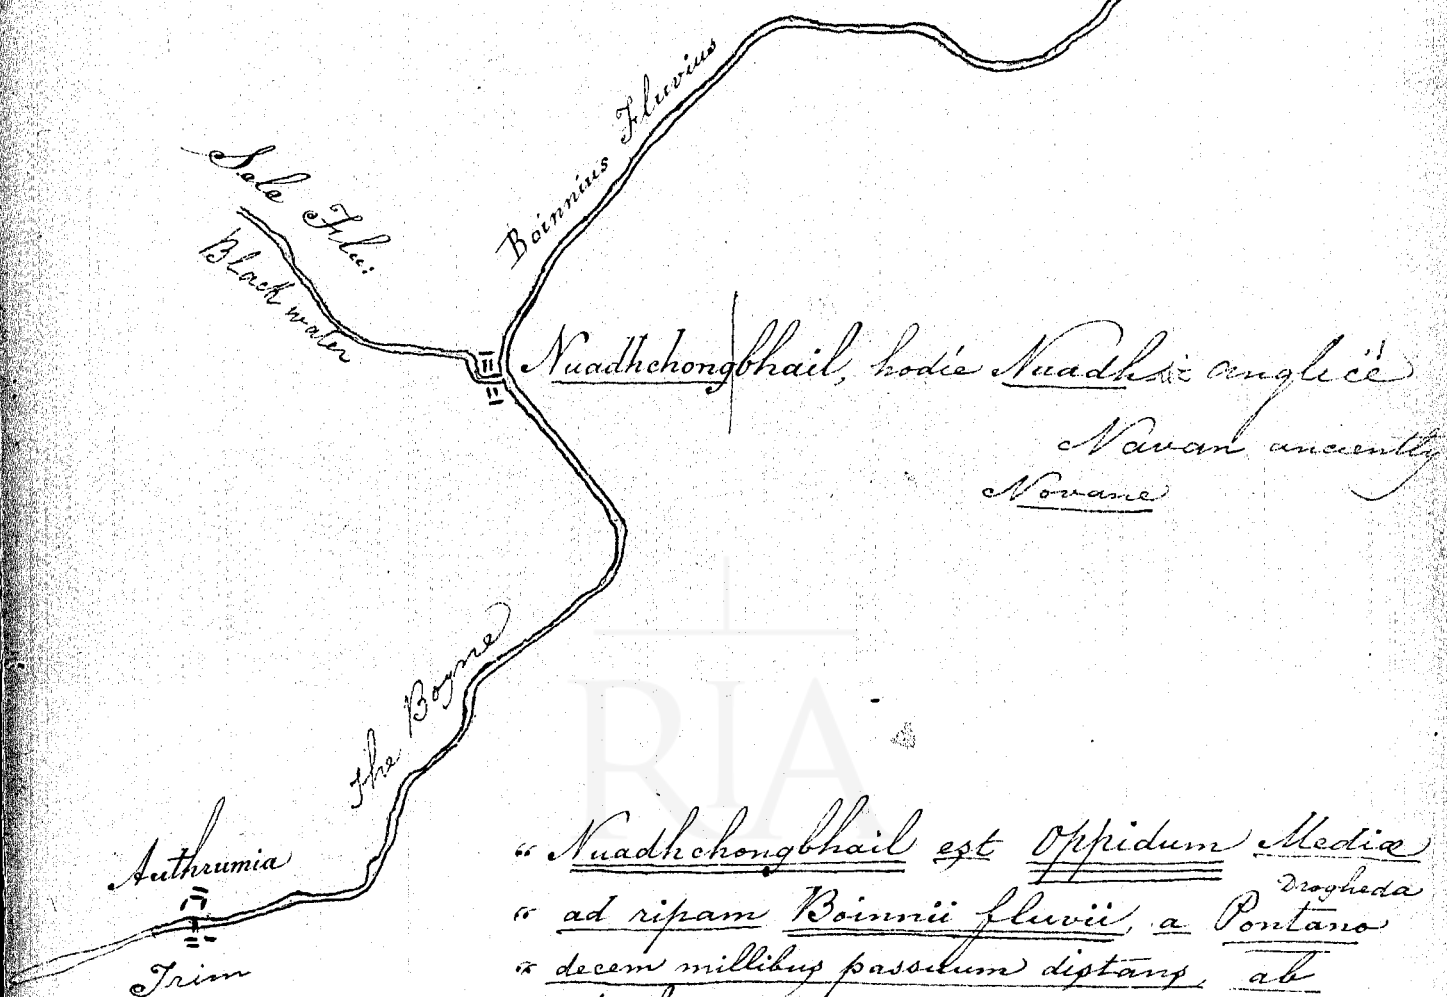 Boinnius Fluvius
Sala Flui
Blackwater
Nuadhchongbhail, hodie Nuadh anglicé
Navan anciently
Novane
The Boyne
RIA
Authrumia
Trim
“ Nuadhchongbhail est Oppidum Mediæ
Drogheda
“ ad ripam Boinnii fluvii, a Pontano
“ decem millibus passuum distans, ab